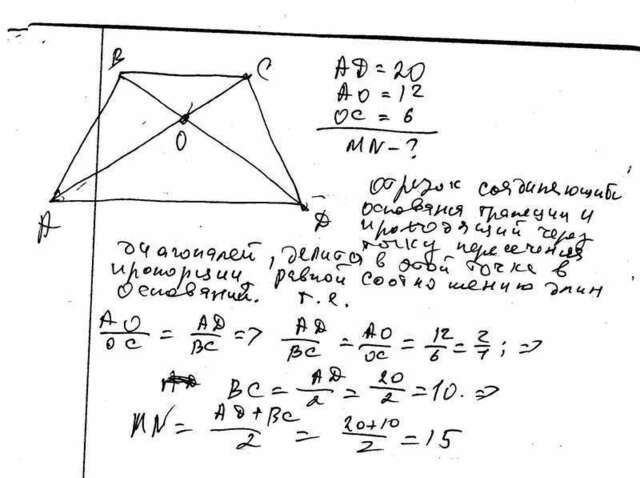 B
C
O
A
D
AD = 20
AO = 12
OC = 6
MN - ?
отрезок соединяющий
основания трапеции и
проходящий через
точку пересечения
диагоналей, делится в этой точке в
пропорции, равной соотношению длин
оснований. т.е.
AO/OC = AD/BC => AD/BC = AO/OC = 12/6 = 2/1; =>
BC = AD/2 = 20/2 = 10. =>
MN = AD + BC/2 = 20+10/2 = 15